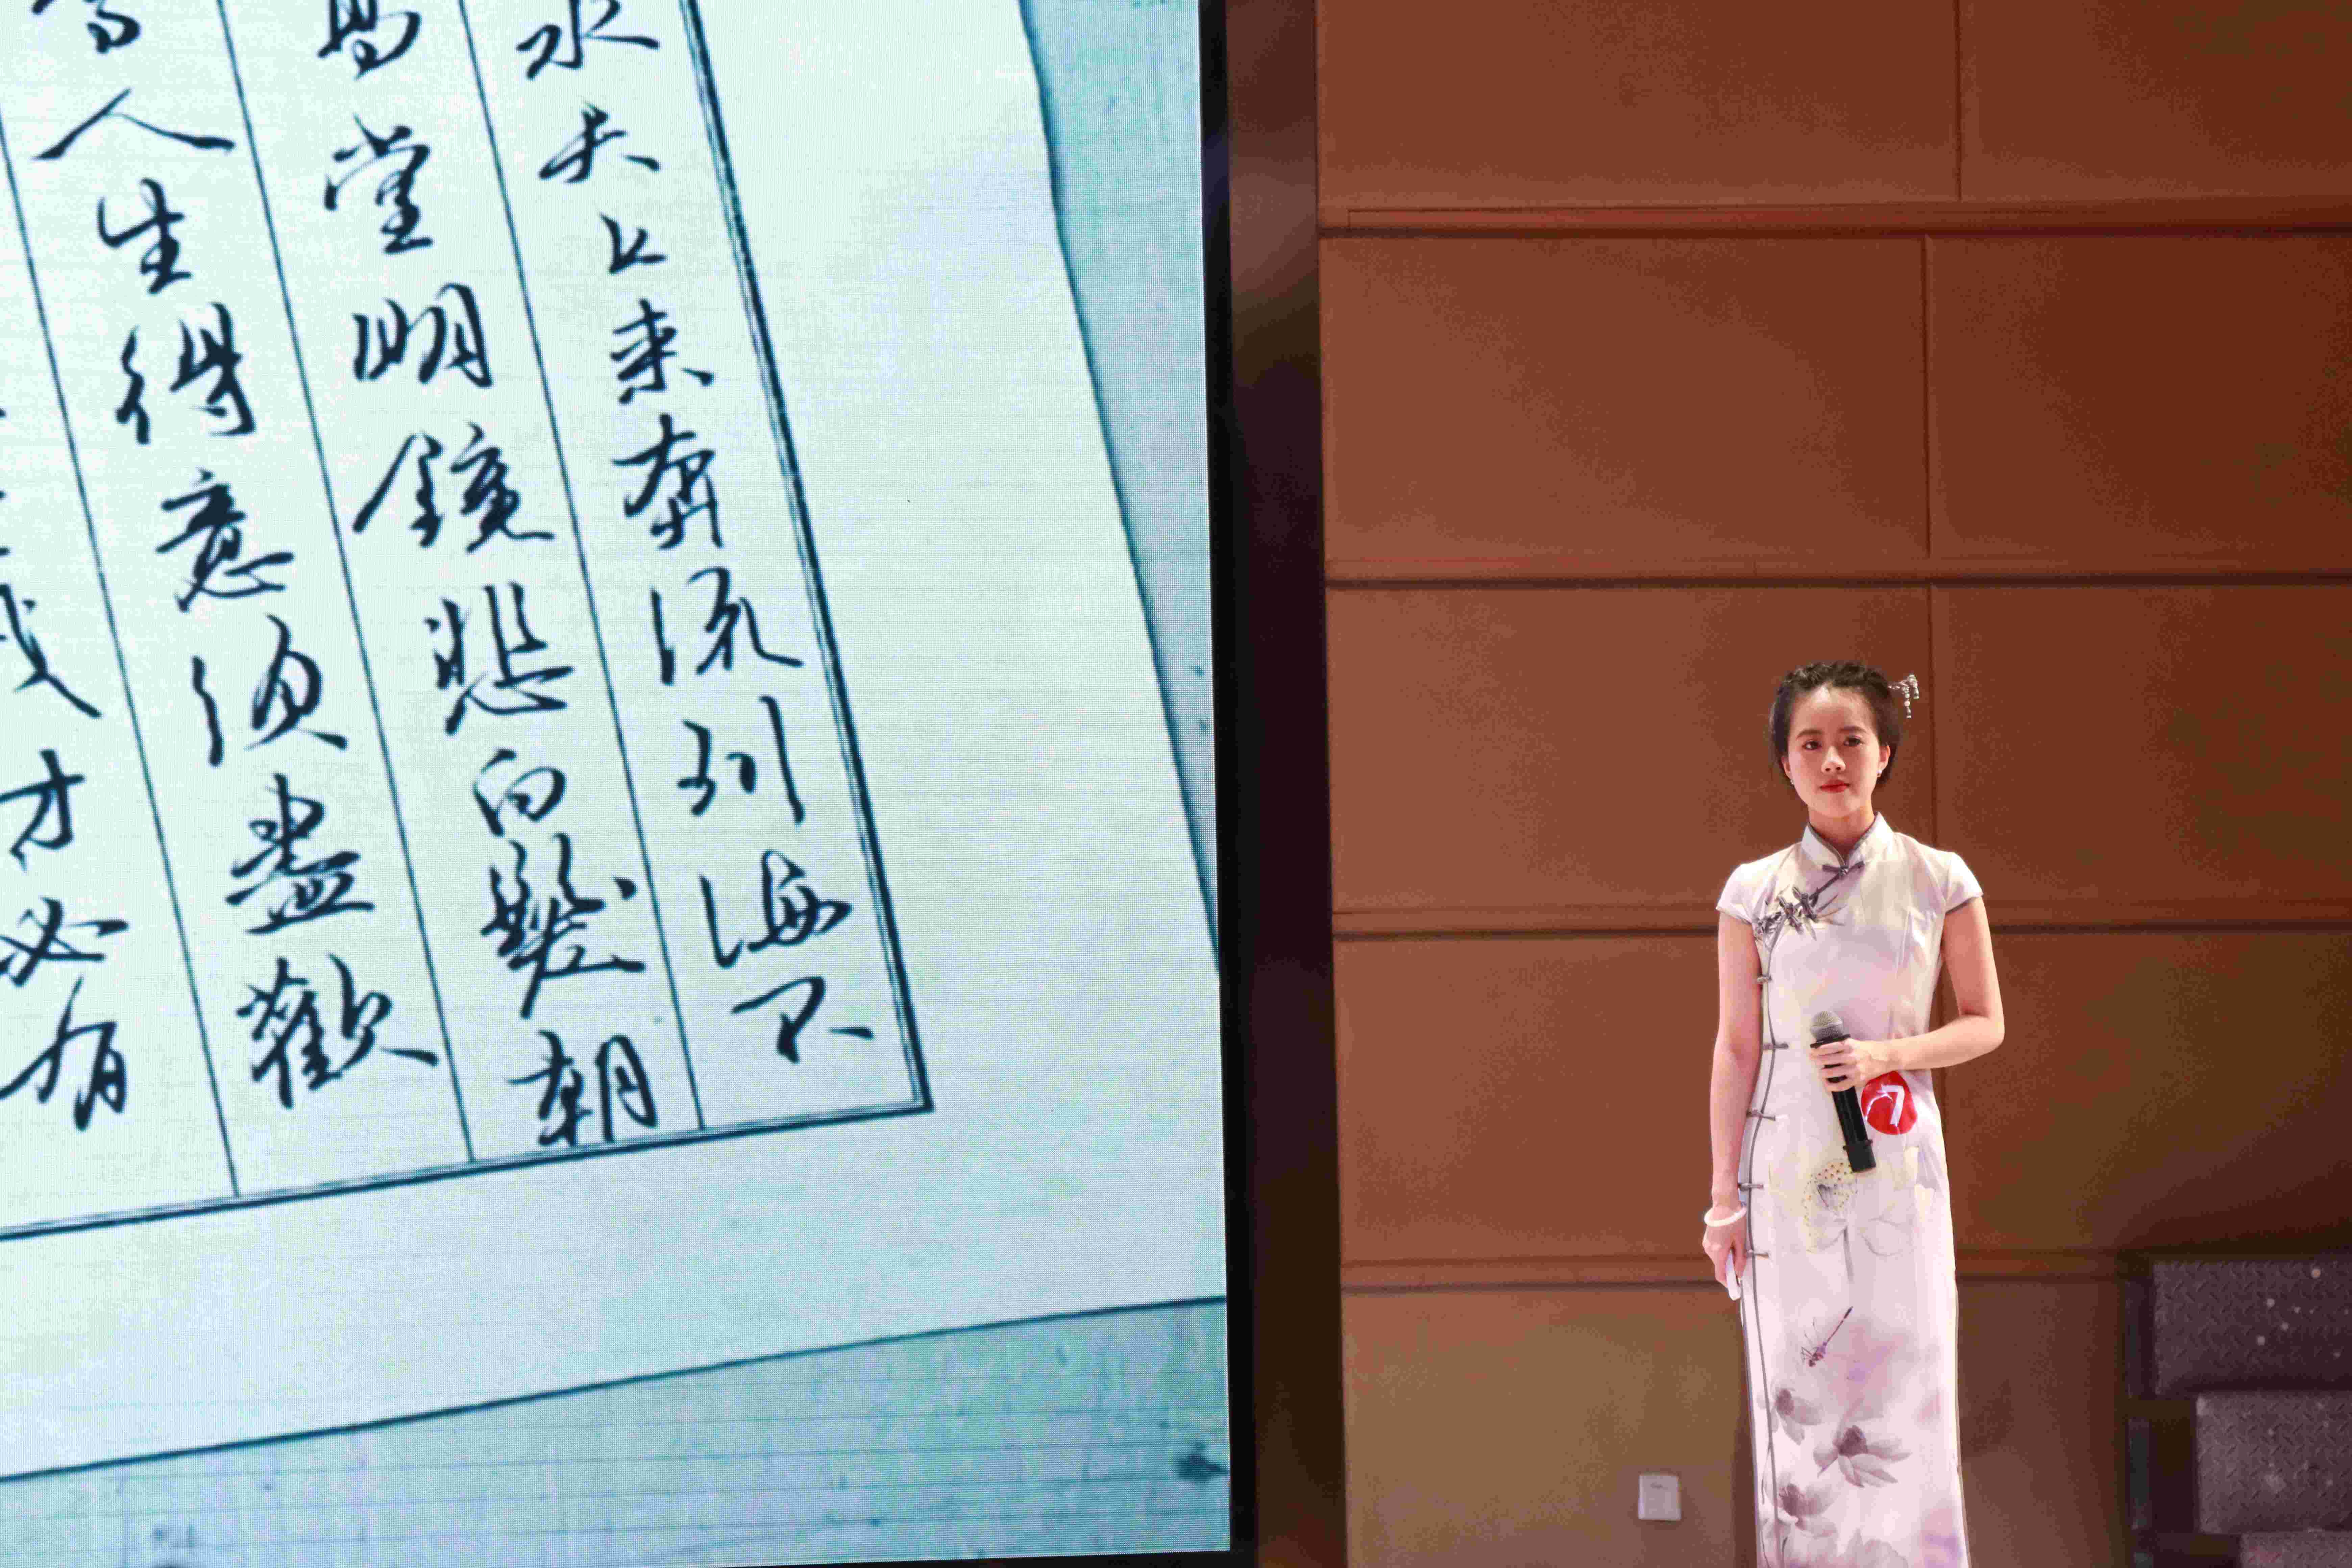 水天上来奔流到海不
高堂明鏡悲白髮朝
人生得意須盡歡
我才必有
7